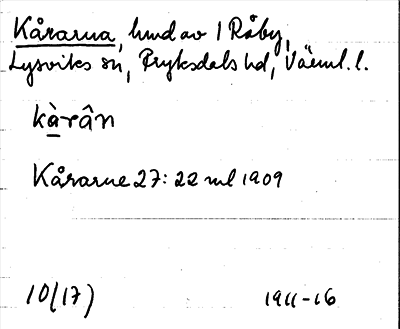 Kårarna, hmd av 1 Råby,
Lysviks sn, Fryksdals hd, Värml. l.
kàrân
Kårarne 27:22 ml 1909
10(17) 1911-16